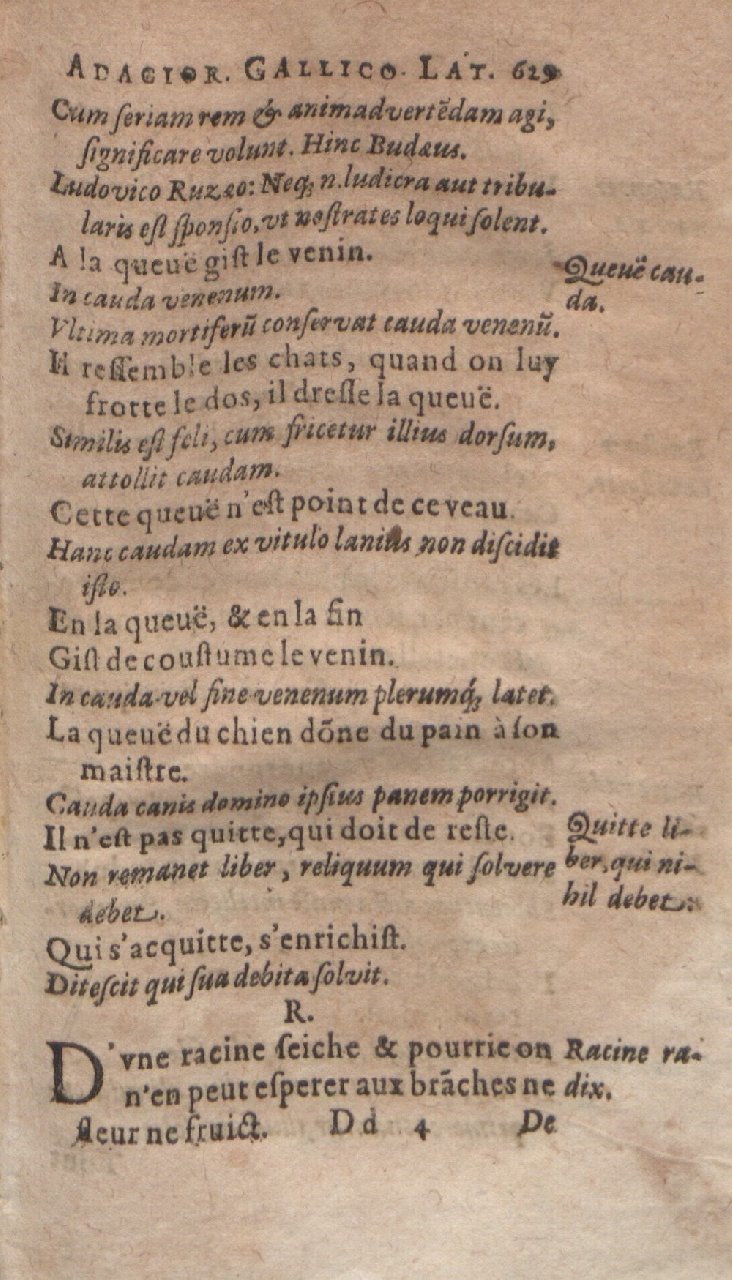 ADAGIOR. GALLICO. LAT. 629
Cum ſeriam rem & animadvertēdam agi,
ſignificare volunt. Hinc Budæus.
Ludovico Ruzæo: Neq; n. ludicra aut tribu-
laris eſt ſponſio, vt noſtrates loqui ſolent.
A la queuë giſt le venin.
Queuë cau-
da.
In cauda venenum.
Vltima mortiferū conſervat cauda venenū.
Il reſſemble les chats, quand on luy
frotte le dos, il dreſſe la queuë.
Similis eſt feli, cum fricetur illius dorſum,
attollit caudam.
Cette queuë n'eſt point de ce veau.
Hanc caudam ex vitulo lanius non diſcidit
iſto.
En la queuë, & en la fin
Giſt de couſtume le venin.
In cauda vel fine venenum plerumq́; latet.
La queuë du chien dōne du pain à ſon
maiſtre.
Cauda canis domino ipſius panem porrigit.
Il n'eſt pas quitte, qui doit de reſte.
Quitte li-
ber, qui ni-
hil debet.
Non remanet liber, reliquum qui ſolvere
debet.
Qui s'acquitte, s'enrichiſt.
Diteſcit qui ſua debita ſolvit.
R.
D'vne racine ſeiche & pourrie on
Racine ra-
dix.
n'en peut eſperer aux brāches ne
fleur ne fruict. Dd 4 De